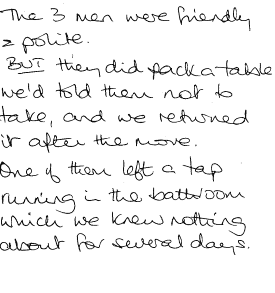 The 3 men were friendly
& polite.
BUT they did pack a table
we'd told them not to
take, and we returned
it after the move.
One of them left a tap
running in the bathroom
which we knew nothing
about for several days.